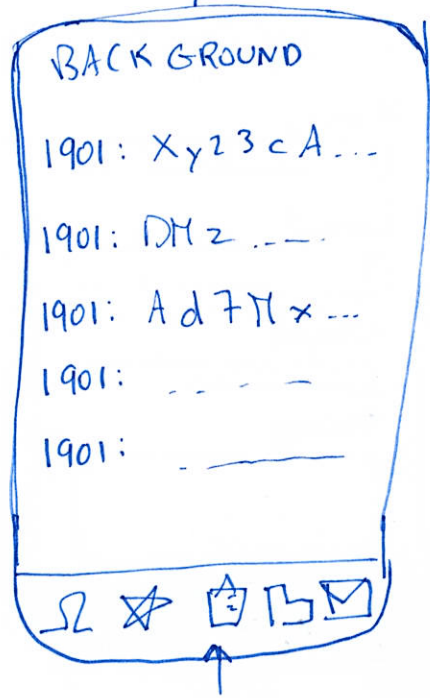 BACKGROUND
1901: Xy23cA...
1901: DMz .....
1901: Ad7Mx...
1901: . . . .
1901: . ____